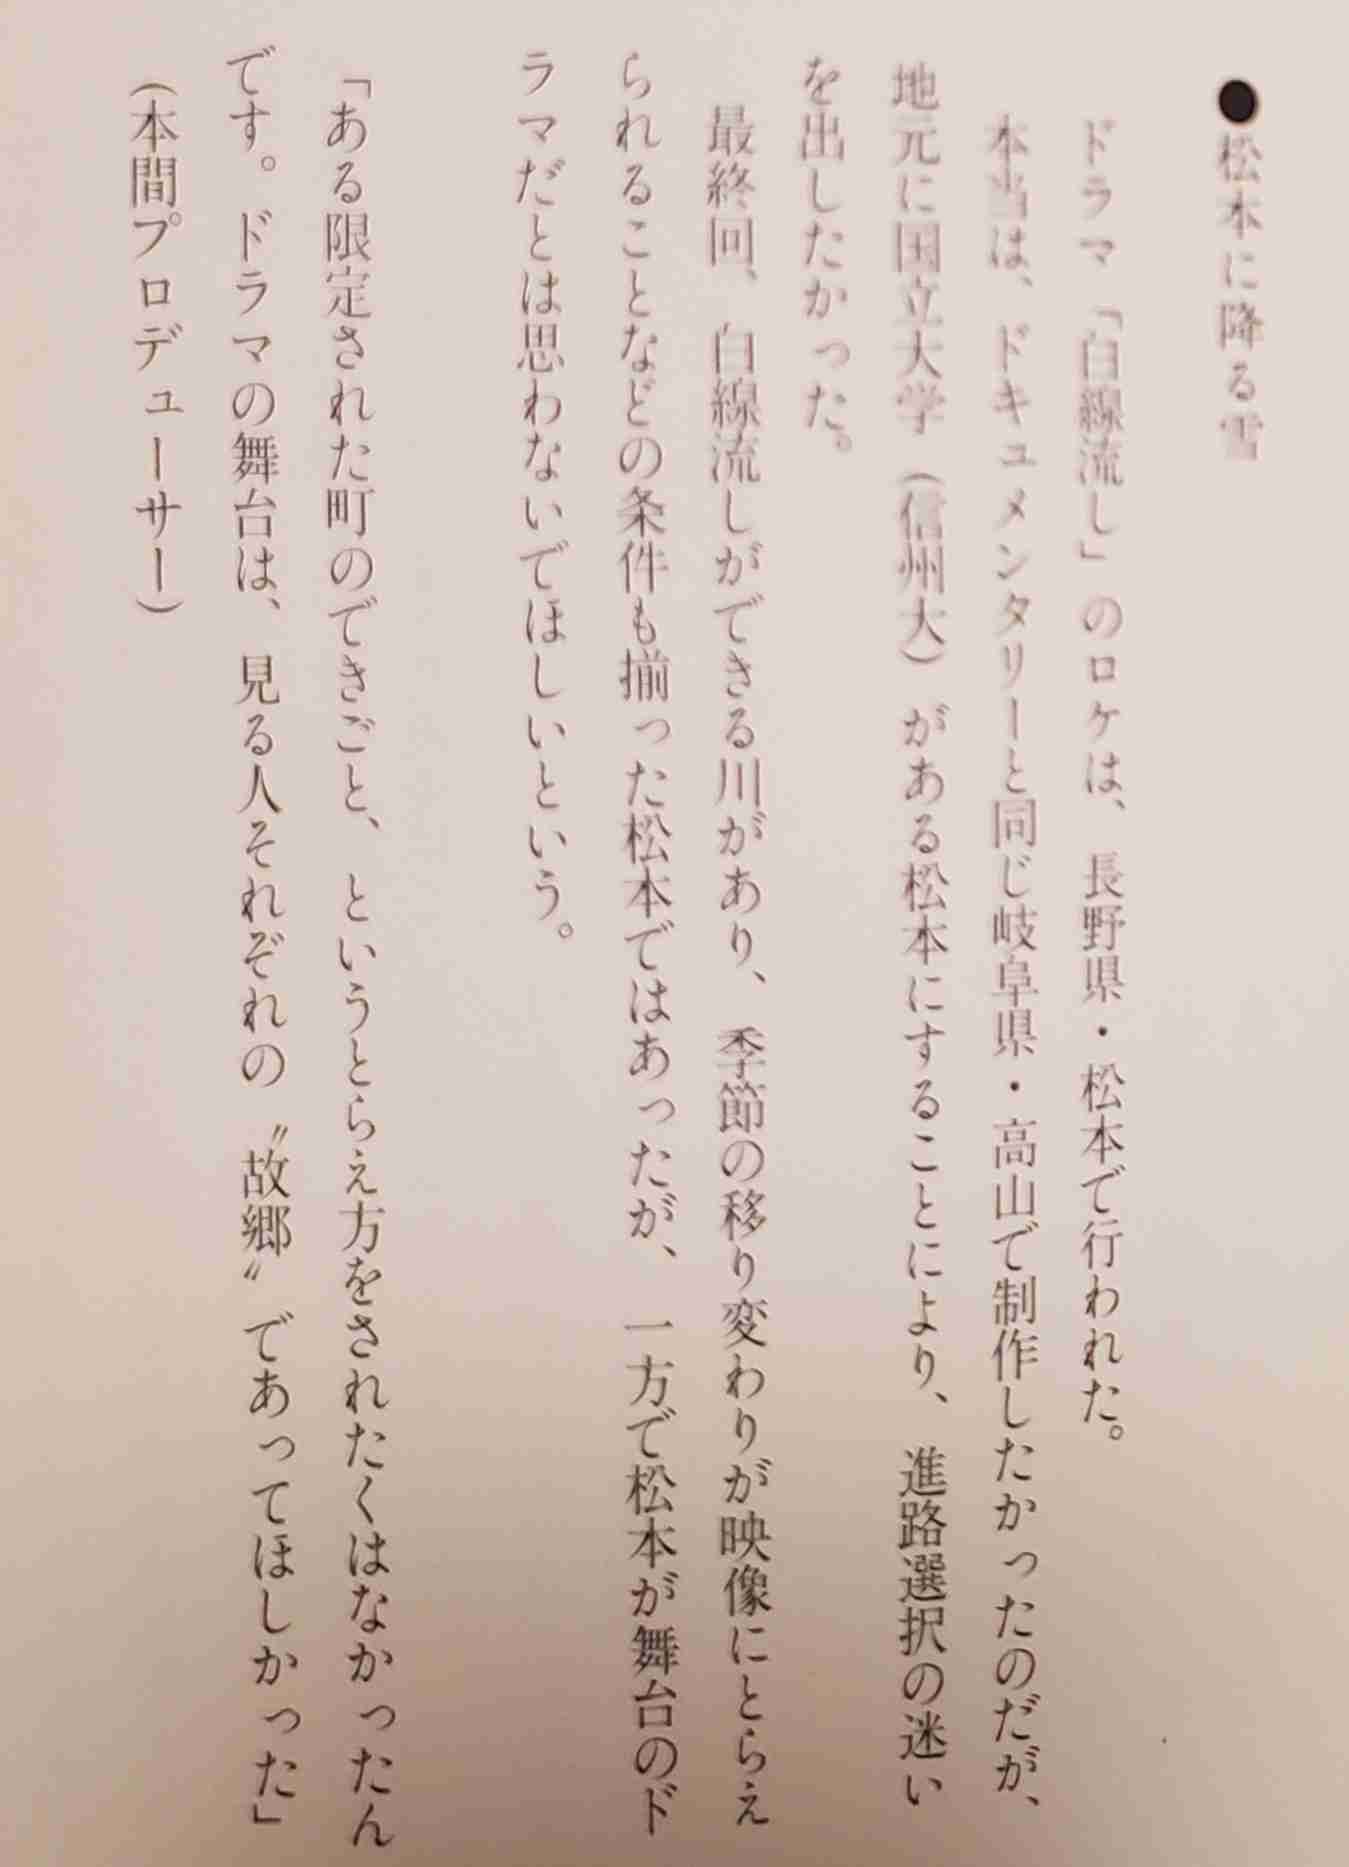 ●松本に降る雪
ドラマ、「白線流し」のロケは、長野県・松本で行われた。
本当は、ドキュメンタリーと同じ岐阜県・高山で制作したかったのだが、
地元に国立大学（信州大）がある松本にすることにより、進路選択の迷い
を出したかった。
最終回、白線流しができる川があり、季節の移り変わりが映像にとらえ
られることなどの条件も揃った松本ではあったが、一方で松本が舞台のド
ラマだとは思わないでほしいという。
「ある限定された町のできごと、というとらえ方をされたくはなかったん
です。ドラマの舞台は、見る人それぞれの〝故郷〟であってほしかった」
（本間プロデューサー）